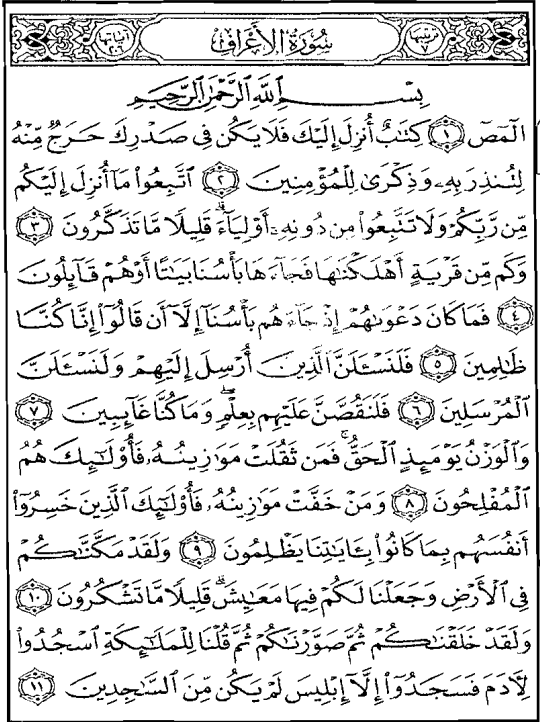 ترتيبها ٧ سُورَةُ الأَعْرَافِ آياتها ٢٠٦
بِسْمِ ٱللَّهِ ٱلرَّحْمَٰنِ ٱلرَّحِيمِ
الٓمٓصٓ ١ كِتَٰبٌ أُنزِلَ إِلَيْكَ فَلَا يَكُن فِى صَدْرِكَ حَرَجٌ مِّنْهُ
لِتُنذِرَ بِهِۦ وَذِكْرَىٰ لِلْمُؤْمِنِينَ ٢ ٱتَّبِعُوا۟ مَآ أُنزِلَ إِلَيْكُم
مِّن رَّبِّكُمْ وَلَا تَتَّبِعُوا۟ مِن دُونِهِۦٓ أَوْلِيَآءَ ۗ قَلِيلًا مَّا تَذَكَّرُونَ ٣
وَكَم مِّن قَرْيَةٍ أَهْلَكْنَٰهَا فَجَآءَهَا بَأْسُنَا بَيَٰتًا أَوْ هُمْ قَآئِلُونَ
٤ فَمَا كَانَ دَعْوَىٰهُمْ إِذْ جَآءَهُم بَأْسُنَآ إِلَّآ أَن قَالُوٓا۟ إِنَّا كُنَّا
ظَٰلِمِينَ ٥ فَلَنَسْـَٔلَنَّ ٱلَّذِينَ أُرْسِلَ إِلَيْهِمْ وَلَنَسْـَٔلَنَّ
ٱلْمُرْسَلِينَ ٦ فَلَنَقُصَّنَّ عَلَيْهِم بِعِلْمٍ ۖ وَمَا كُنَّا غَآئِبِينَ ٧
وَٱلْوَزْنُ يَوْمَئِذٍ ٱلْحَقُّ ۚ فَمَن ثَقُلَتْ مَوَٰزِينُهُۥ فَأُو۟لَٰٓئِكَ هُمُ
ٱلْمُفْلِحُونَ ٨ وَمَنْ خَفَّتْ مَوَٰزِينُهُۥ فَأُو۟لَٰٓئِكَ ٱلَّذِينَ خَسِرُوٓا۟
أَنفُسَهُم بِمَا كَانُوا۟ بِـَٔايَٰتِنَا يَظْلِمُونَ ٩ وَلَقَدْ مَكَّنَّٰكُمْ
فِى ٱلْأَرْضِ وَجَعَلْنَا لَكُمْ فِيهَا مَعَٰيِشَ ۗ قَلِيلًا مَّا تَشْكُرُونَ ١٠
وَلَقَدْ خَلَقْنَٰكُمْ ثُمَّ صَوَّرْنَٰكُمْ ثُمَّ قُلْنَا لِلْمَلَٰٓئِكَةِ ٱسْجُدُوا۟
لِءَادَمَ فَسَجَدُوٓا۟ إِلَّآ إِبْلِيسَ لَمْ يَكُن مِّنَ ٱلسَّٰجِدِينَ ١١